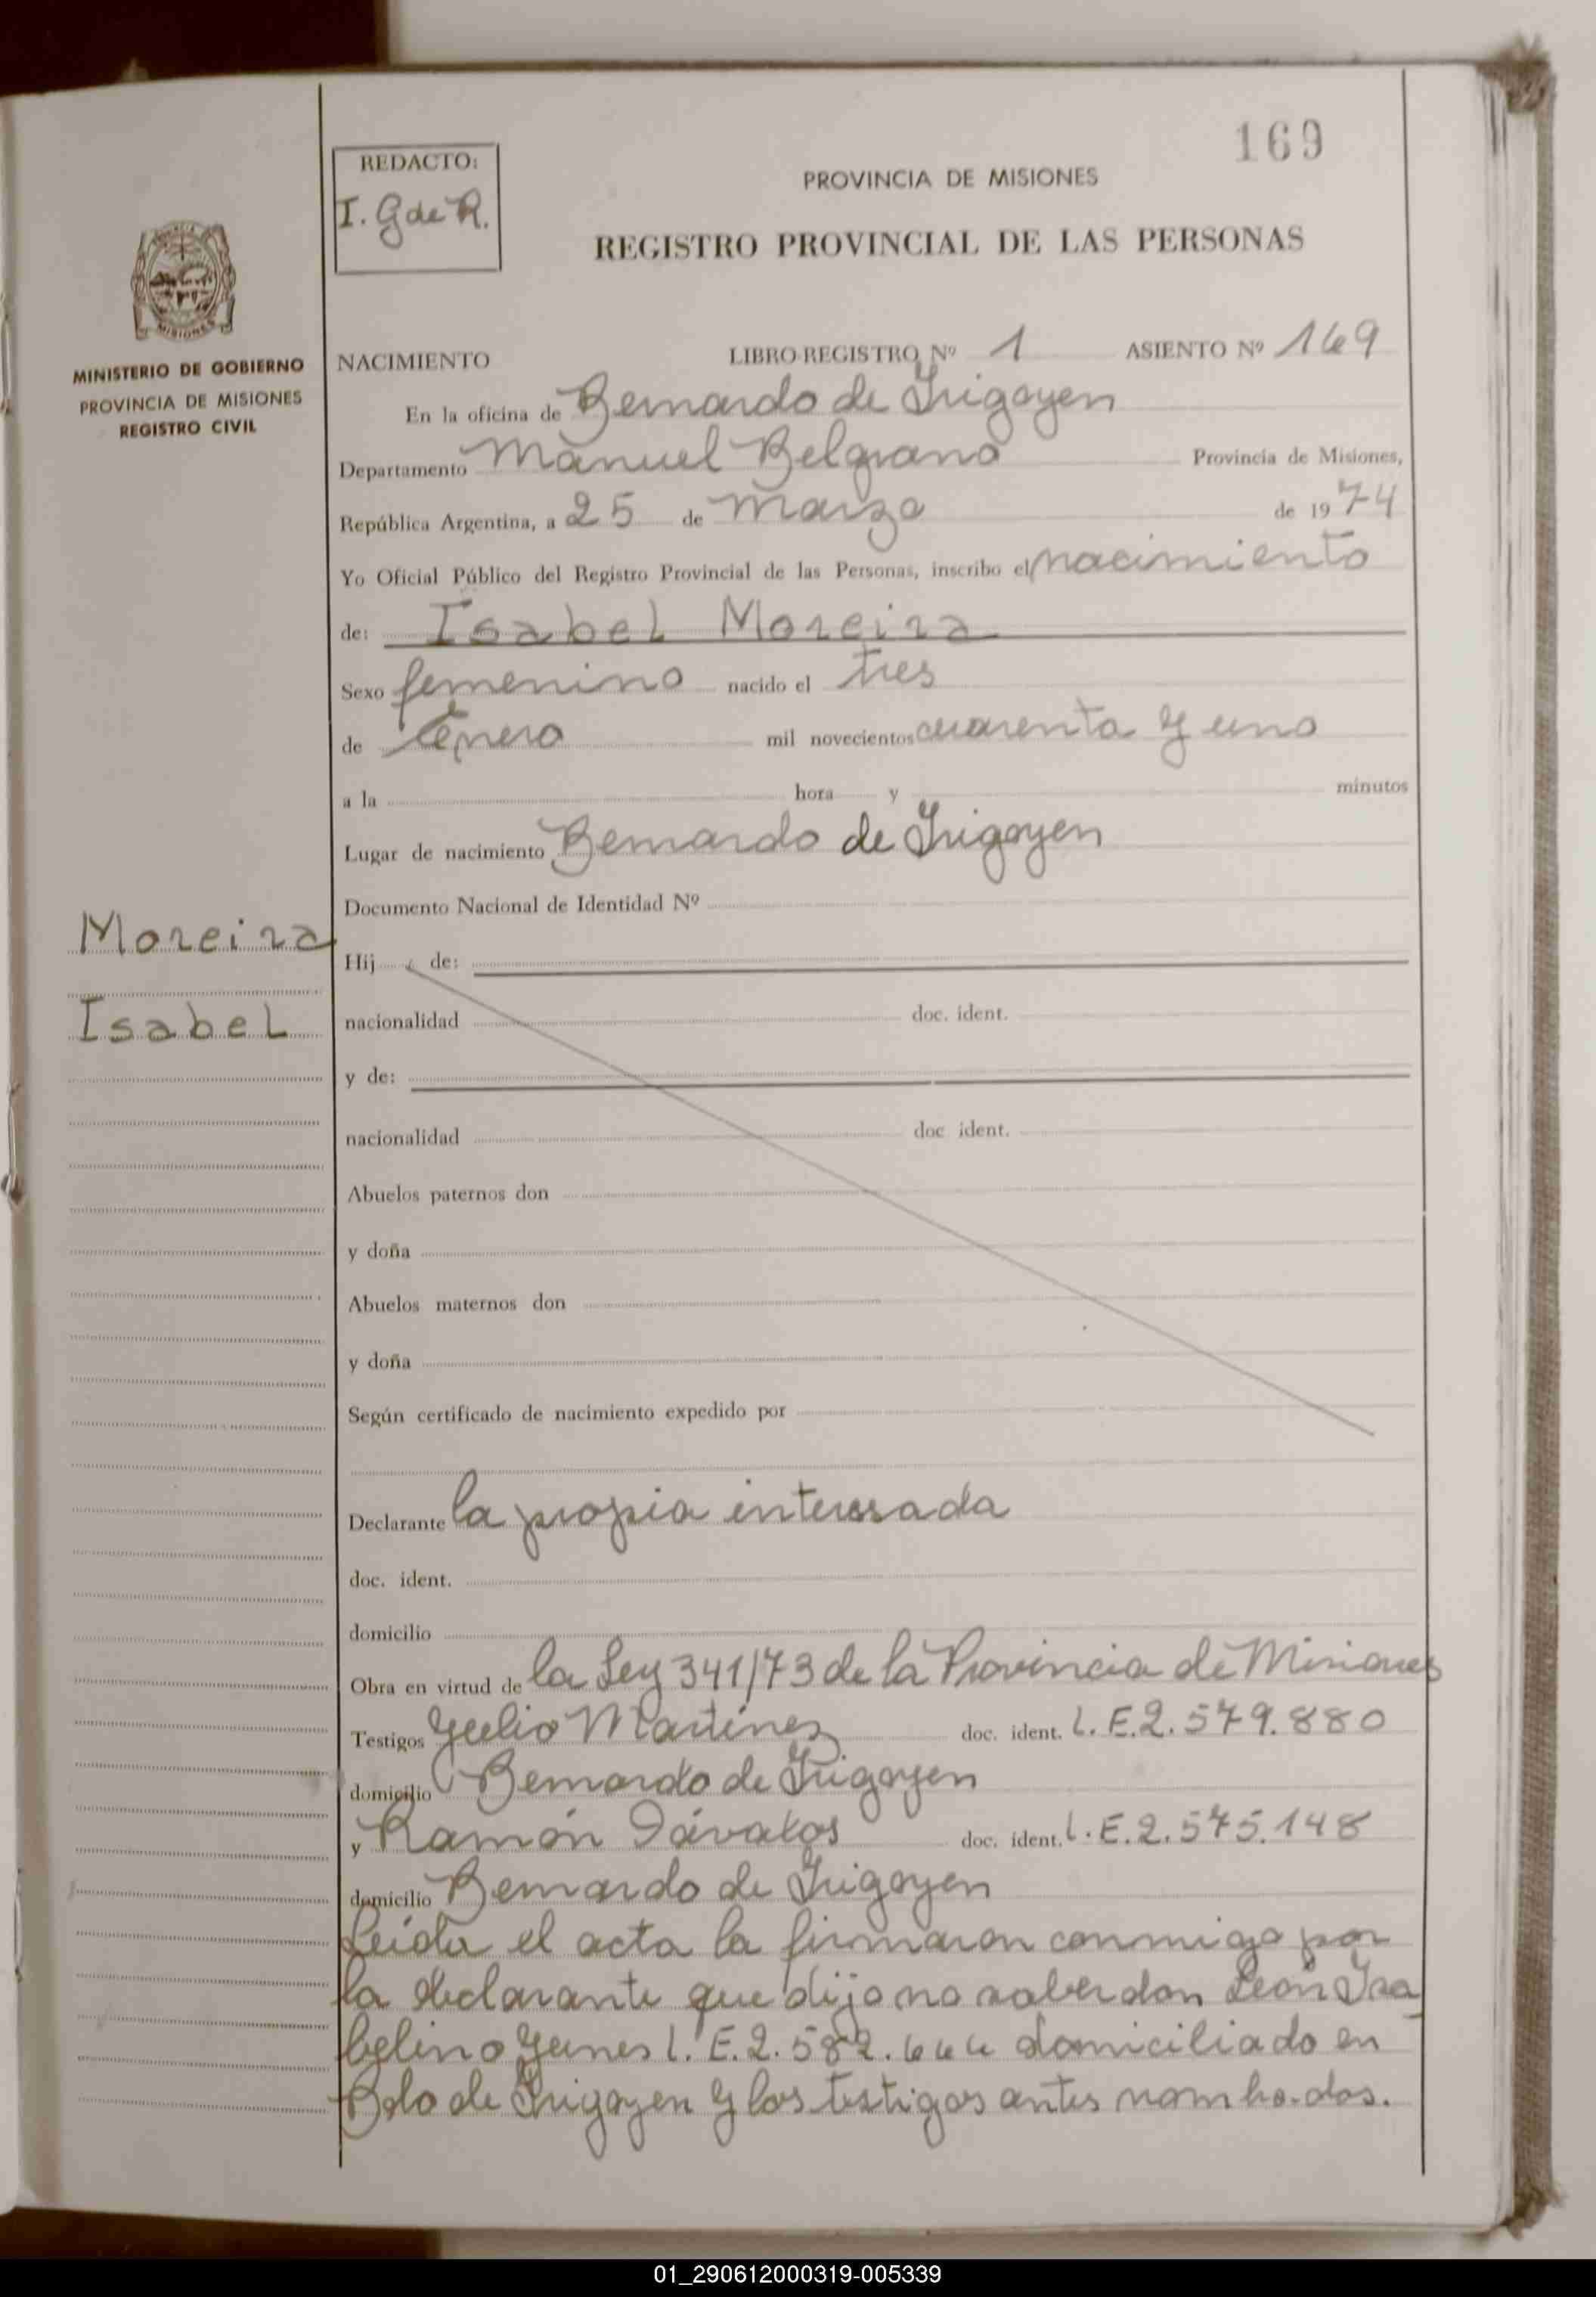 169
REDACTO:
I. G de R.
PROVINCIA DE MISIONES
REGISTRO PROVINCIAL DE LAS PERSONAS
MISIONES
MINISTERIO DE GOBIERNO
PROVINCIA DE MISIONES
REGISTRO CIVIL
NACIMIENTO LIBRO REGISTRO Nº 1 ASIENTO Nº 169
En la oficina de Bernardo de Irigoyen
Departamento Manuel Belgrano Provincia de Misiones,
República Argentina, a 25 de Marzo de 1974
Yo Oficial Público del Registro Provincial de las Personas, inscribo el nacimiento
de: Isabel Moreira
Sexo femenino nacido el tres
de Enero mil novecientos cuarenta y uno
a la hora y minutos
Lugar de nacimiento Bernardo de Irigoyen
Documento Nacional de Identidad Nº
Moreira
Isabel
Hij de:
nacionalidad doc. ident.
y de:
nacionalidad doc ident.
Abuelos paternos don
y doña
Abuelos maternos don
y doña
Según certificado de nacimiento expedido por
Declarante la propia interesada
doc. ident.
domicilio
Obra en virtud de la Ley 341/73 de la Provincia de Misiones
Testigos Julio Martínez doc. ident. L.E.2.579.880
domicilio Bernardo de Irigoyen
y Ramón Dávalos doc. ident. L.E.2.575.148
domicilio Bernardo de Irigoyen
Leída el acta la firmaron conmigo por
la declarante que dijo no saber don León Isa
belino Yunes L.E.2.582.666 domiciliado en
Bdo de Irigoyen y los testigos antes nombrados.
01_290612000319-005339